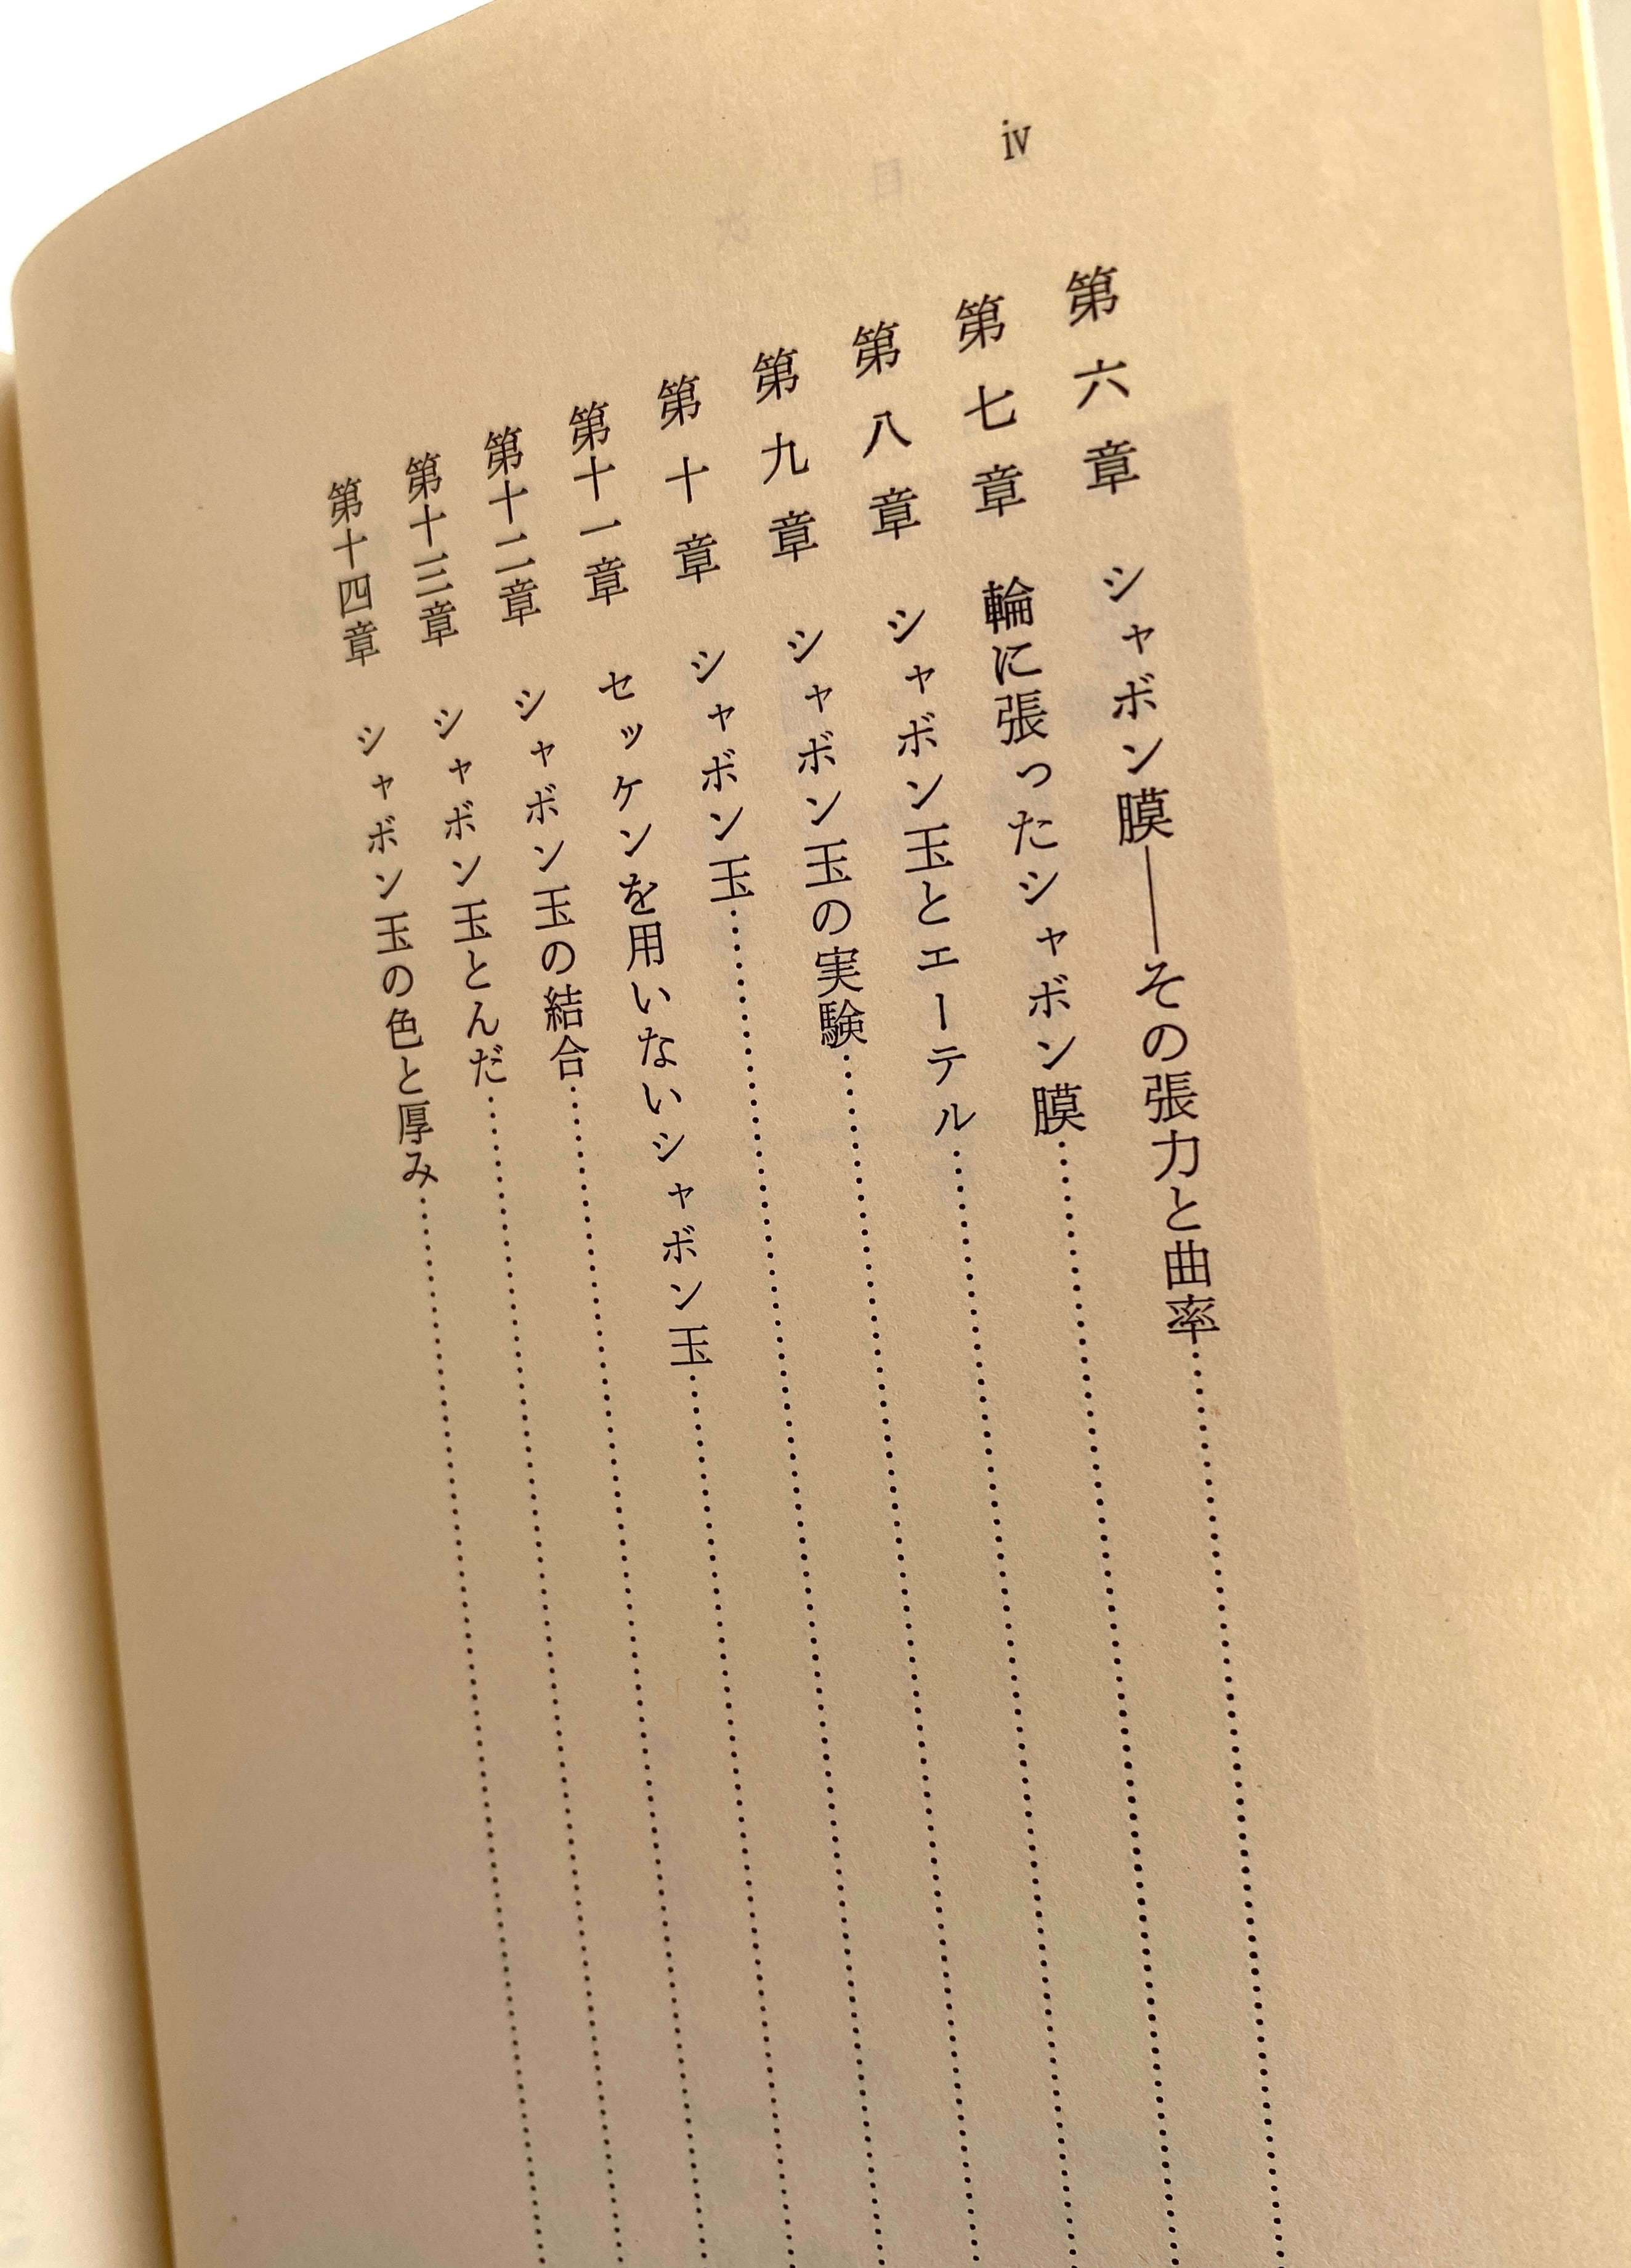 iv
第六章 シャボン膜――その張力と曲率
第七章 輪に張ったシャボン膜
第八章 シャボン玉とエーテル
第九章 シャボン玉の実験
第十章 シャボン玉
第十一章 セッケンを用いないシャボン玉
第十二章 シャボン玉の結合
第十三章 シャボン玉とんだ
第十四章 シャボン玉の色と厚み